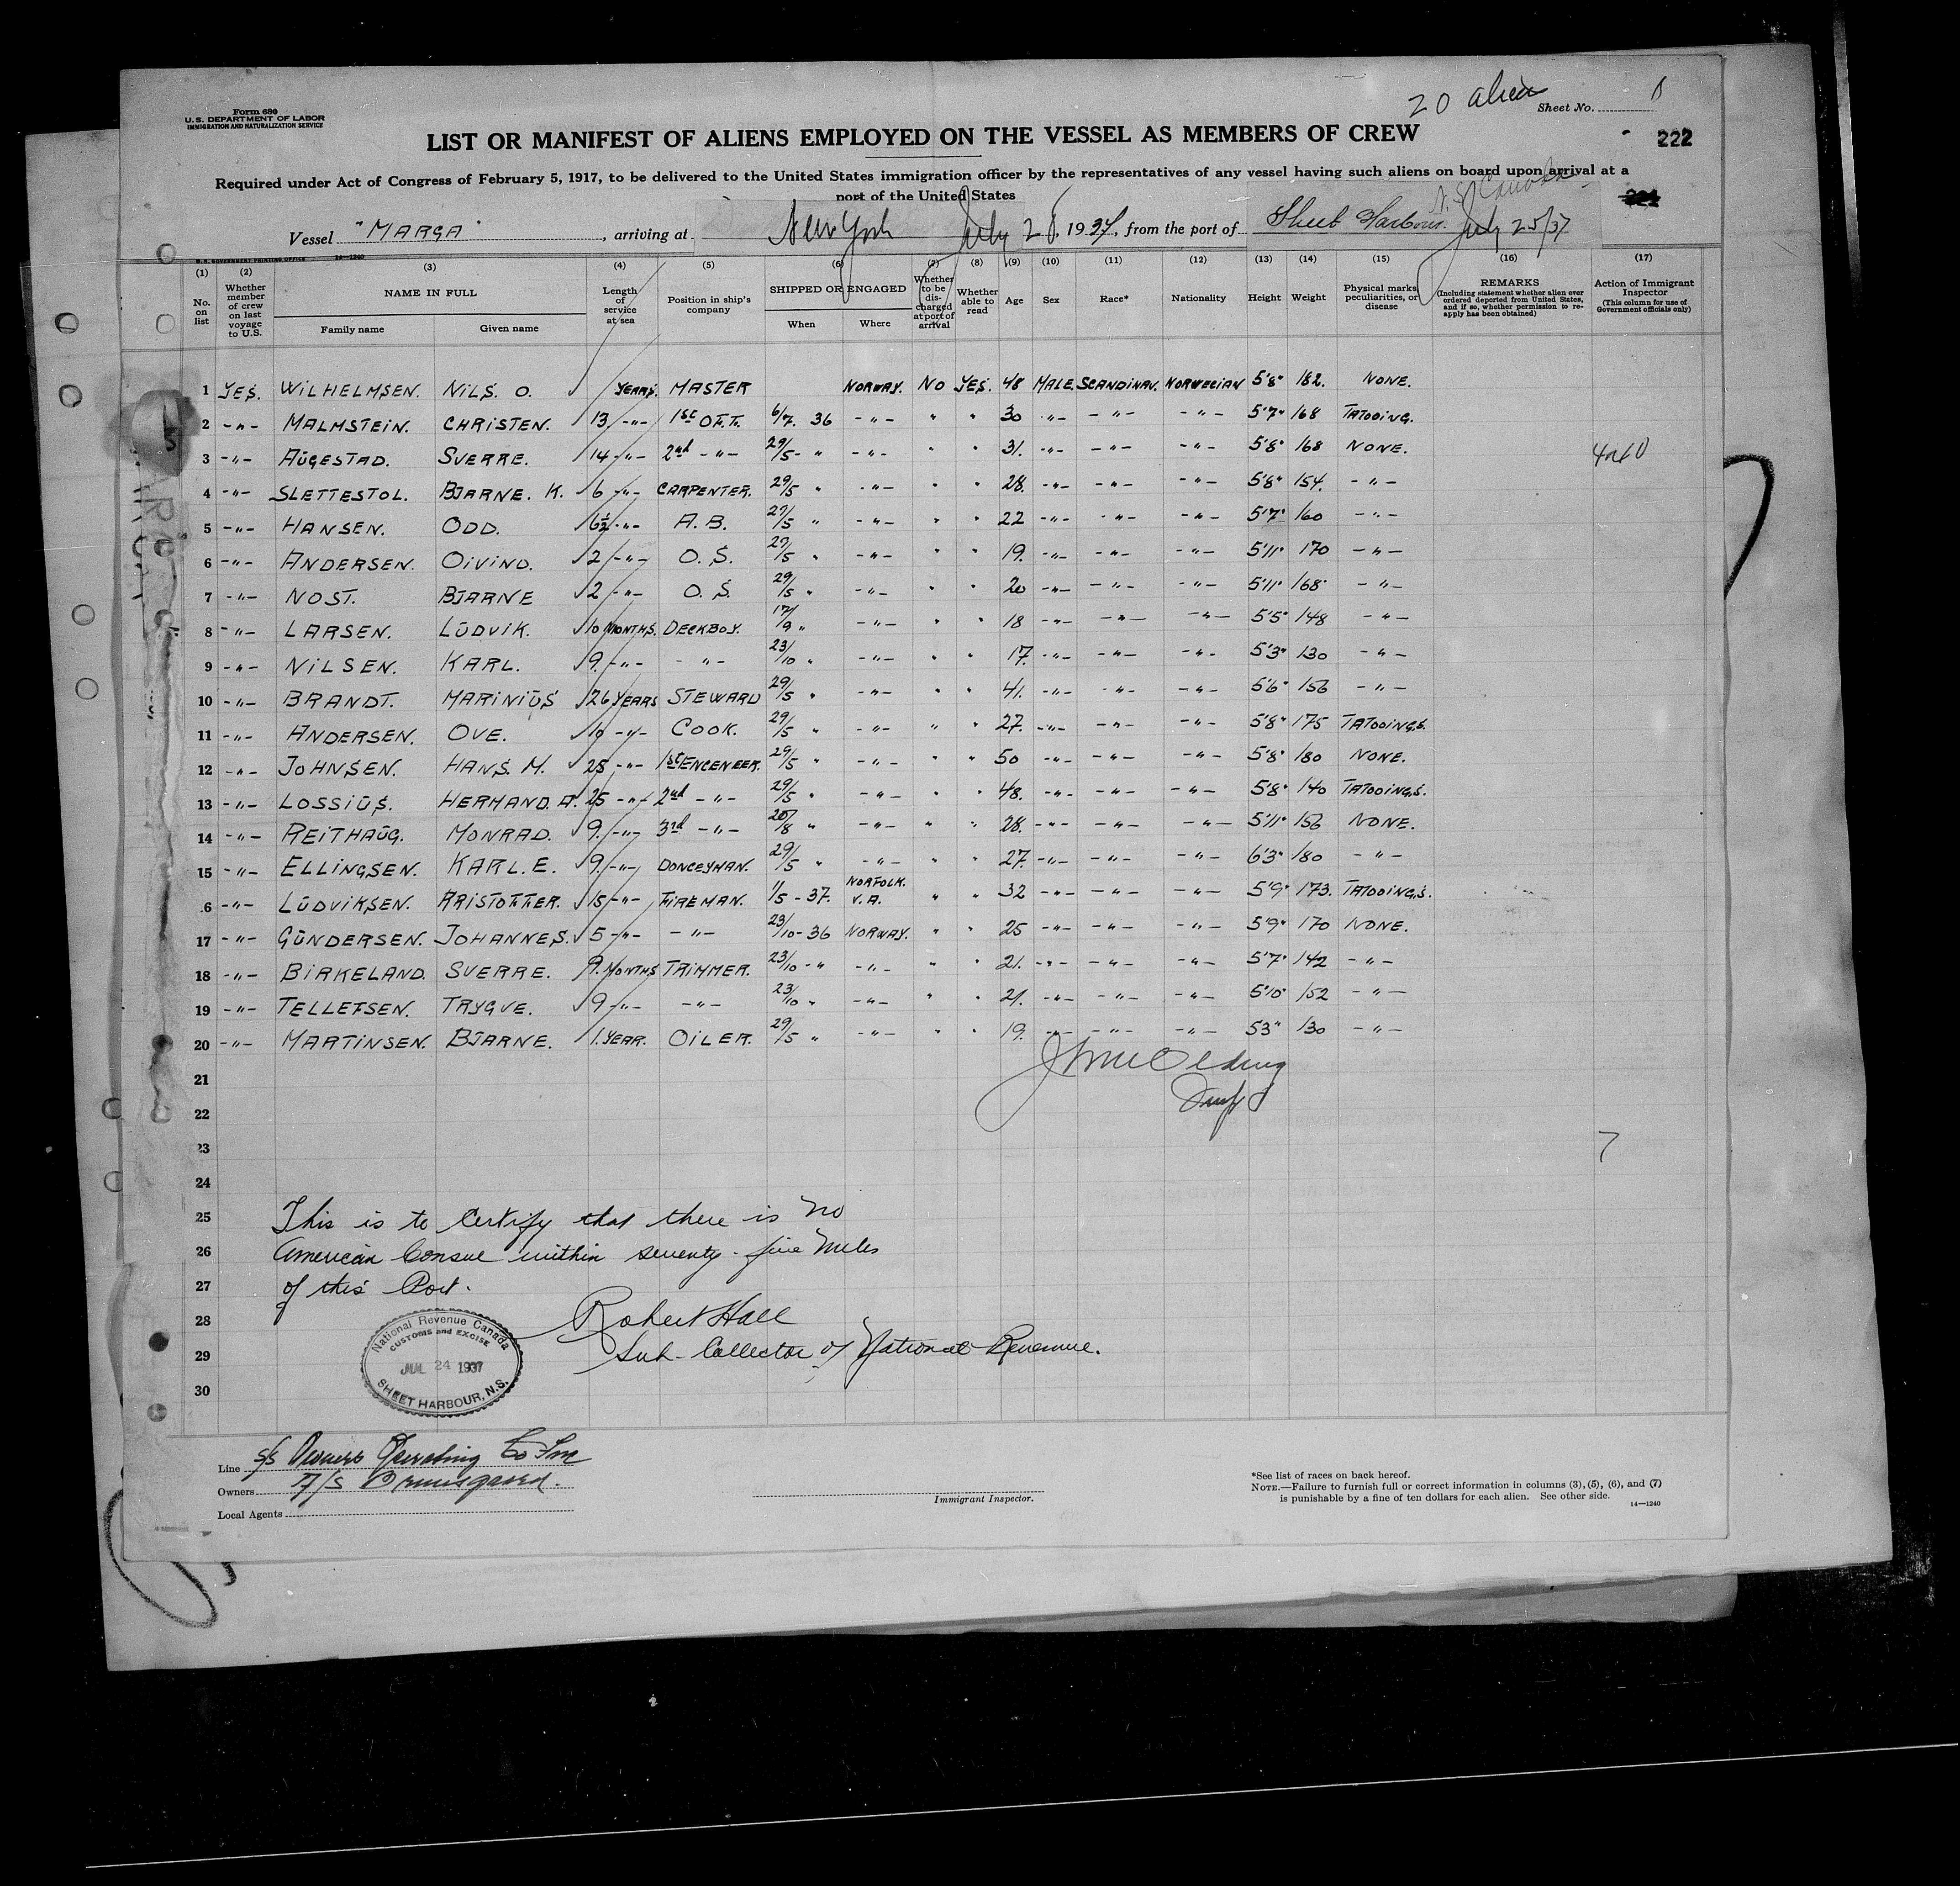 20 alien
Form 680
U.S. DEPARTMENT OF LABOR
IMMIGRATION AND NATURALIZATION SERVICE
Sheet No. 1
LIST OR MANIFEST OF ALIENS EMPLOYED ON THE VESSEL AS MEMBERS OF CREW
222
Required under Act of Congress of February 5, 1917, to be delivered to the United States immigration officer by the representatives of any vessel having such aliens on board upon arrival at a
port of the United States
N.S. Canada
Vessel "MARGA", arriving at New York July 28, 1937, from the port of Sheet Harbour. July 25/37
U.S. GOVERNMENT PRINTING OFFICE 14—1240
(1) (2) (3) (4) (5) (6) (7) (8) (9) (10) (11) (12) (13) (14) (15) (16) (17)
No. on list
Whether member of crew on last voyage to U.S.
NAME IN FULL
Family name Given name
Length of service at sea
Position in ship's company
SHIPPED OR ENGAGED
When Where
Whether to be discharged at port of arrival
Whether able to read
Age Sex Race* Nationality Height Weight
Physical marks, peculiarities, or disease
REMARKS
(Including statement whether alien ever ordered deported from United States, and if so, whether permission to reapply has been obtained)
Action of Immigrant Inspector
(This column for use of Government officials only)
1 YES. WILHELMSEN. NILS. O. YEARS. MASTER NORWAY. NO YES. 48 MALE. SCANDINAV. NORWEGIAN 5'8" 182. NONE.
2 -"- MALMSTEIN. CHRISTEN. 13 -"- 1st OFF. 6/7. 36 -"- " " 30 -"- -"- -"- 5'7" 168 TATOOING.
3 -"- AUGESTAD. SVERRE. 14 -"- 2nd -"- 29/5 - " -"- " " 31. -"- -"- -"- 5'8" 168 NONE.
4 -"- SLETTESTOL. BJARNE. K. 6 -"- CARPENTER. 29/5 " -"- " " 28. -"- -"- -"- 5'8" 154. -"-
5 -"- HANSEN. ODD. 6½ -"- A.B. 27/5 " -"- " " 22 -"- -"- -"- 5'7" 160 -"-
6 -"- ANDERSEN. OIVIND. 2 -"- O.S. 27/5 " -"- " " 19. -"- -"- -"- 5'11" 170 -"-
7 -"- NOST. BJARNE 2 -"- O.S. 29/5 " -"- " " 20 -"- -"- -"- 5'11" 168 -"-
8 -"- LARSEN. LUDVIK. 10 MONTHS. DECKBOY. 17/9 " -"- " " 18 -"- -"- -"- 5'5" 148 -"-
9 -"- NILSEN. KARL. 9. -"- -"- 23/10 " -"- " " 17. -"- -"- -"- 5'3" 130 -"-
10 -"- BRANDT. MARINIUS 26 YEARS STEWARD 29/5 " -"- " " 41. -"- -"- -"- 5'6" 156 -"-
11 -"- ANDERSEN. OVE. 10 -"- COOK. 29/5 " -"- " " 27. -"- -"- -"- 5'8" 175 TATOOINGS.
12 -"- JOHNSEN. HANS. M. 25 -"- 1st ENGENEER. 29/5 " -"- " " 50 -"- -"- -"- 5'8" 180 NONE.
13 -"- LOSSIUS. HERMAND. A. 25 -"- 2nd -"- 29/5 " -"- " " 48. -"- -"- -"- 5'8" 140 TATOOINGS.
14 -"- REITHAUG. MONRAD. 9. -"- 3rd -"- 20/8 " -"- " " 28. -"- -"- -"- 5'11" 156 NONE.
15 -"- ELLINGSEN. KARL.E. 9. -"- DONCEYMAN. 29/5 " -"- " " 27. -"- -"- -"- 6'3" 180 -"-
16 -"- LUDVIKSEN. KRISTOFFER. 15 -"- FIREMAN. 11/5 - 37. NORFOLK. V.A. " " 32 -"- -"- -"- 5'9" 173. TATOOINGS.
17 -"- GUNDERSEN. JOHANNES. 5 -"- -"- 23/10 - 36 NORWAY. " " 25 -"- -"- -"- 5'9" 170 NONE.
18 -"- BIRKELAND. SVERRE. 9. MONTHS TRIMMER. 23/10 - " -"- " " 21. -"- -"- -"- 5'7" 142 -"-
19 -"- TELLEFSEN. TRYGVE. 9 -"- -"- 23/10 " -"- " " 21. -"- -"- -"- 5'10" 152 -"-
20 -"- MARTINSEN. BJARNE. 1. YEAR. OILER. 29/5 " -"- " " 19. -"- -"- -"- 53" 130 -"-
21
22
23
24
25 This is to Certify that there is no
26 American Consul within seventy-five miles
27 of this Port.
28 Robert Hall
29 Sub-Collector of National Revenue.
30
National Revenue Canada
CUSTOMS and EXCISE
JUL 24 1937
SHEET HARBOUR, N.S.
Line S/S Owners Operating Co Inc
Owners A/S Ormsgaard.
Local Agents
Immigrant Inspector.
*See list of races on back hereof.
NOTE.—Failure to furnish full or correct information in columns (3), (5), (6), and (7)
is punishable by a fine of ten dollars for each alien. See other side.
14—1240